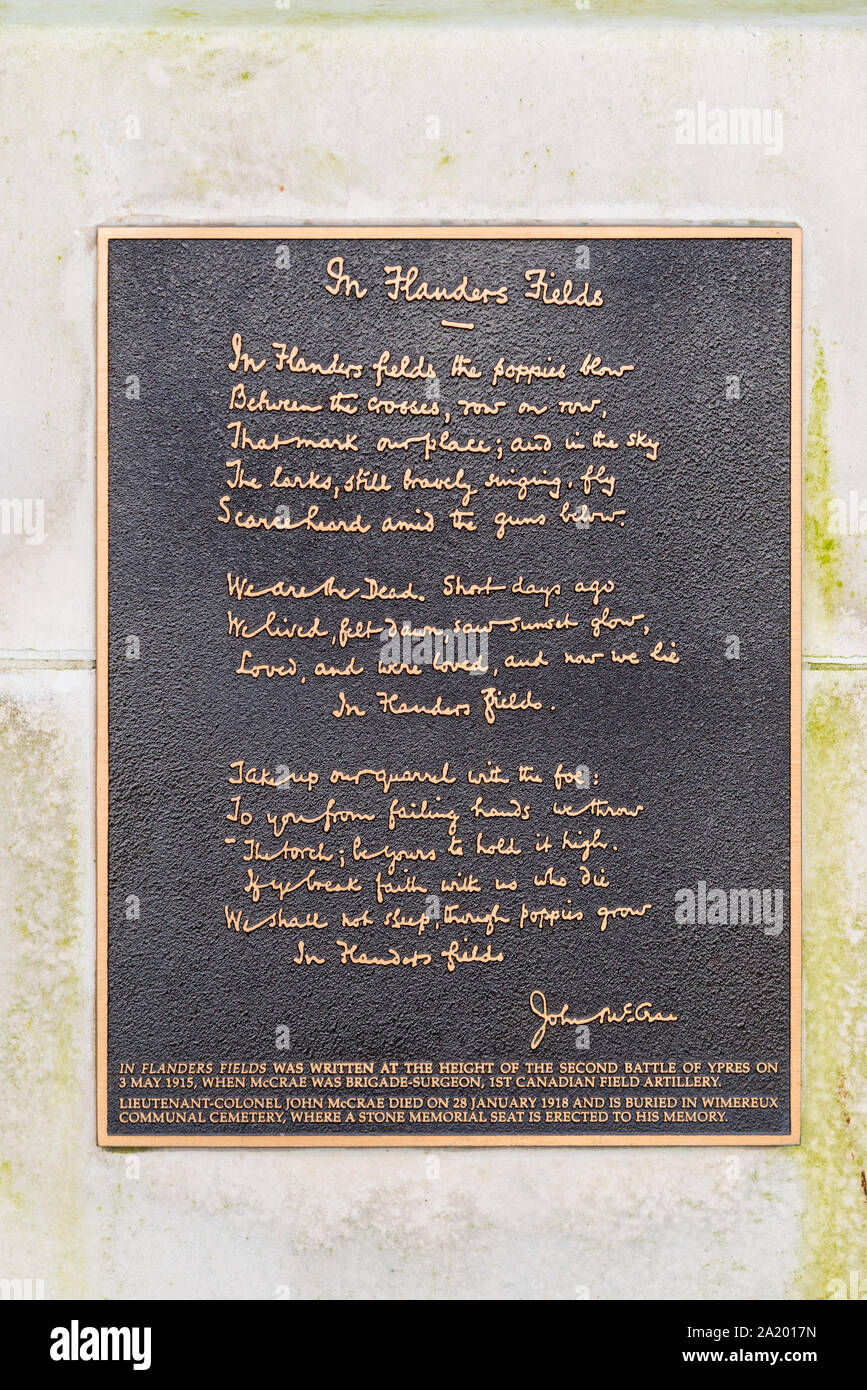 In Flanders Fields
In Flanders fields the poppies blow
Between the crosses, row on row,
That mark our place; and in the sky
The larks, still bravely singing, fly
Scarce heard amid the guns below.
We are the Dead. Short days ago
We lived, felt dawn, saw sunset glow,
Loved, and were loved, and now we lie
In Flanders fields.
Take up our quarrel with the foe:
To you from failing hands we throw
The torch; be yours to hold it high.
If ye break faith with us who die
We shall not sleep, though poppies grow
In Flanders fields
John McCrae
IN FLANDERS FIELDS WAS WRITTEN AT THE HEIGHT OF THE SECOND BATTLE OF YPRES ON
3 MAY 1915, WHEN McCRAE WAS BRIGADE-SURGEON, 1ST CANADIAN FIELD ARTILLERY.
LIEUTENANT-COLONEL JOHN McCRAE DIED ON 28 JANUARY 1918 AND IS BURIED IN WIMEREUX
COMMUNAL CEMETERY, WHERE A STONE MEMORIAL SEAT IS ERECTED TO HIS MEMORY.
alamy
alamy
alamy
Image ID: 2A2017N
www.alamy.com